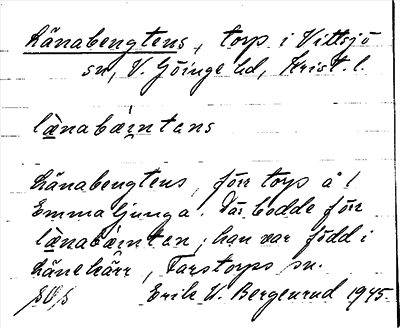 Länabengtens, torp i Vittsjö
sn, V. Göinge hd, Krist. l.
länabäintans
Länabengtens, förr torp å
Emmaljunga. Där bodde förr
länabäintan; han var född i
Länehärr, Farstorps sn.
Erik V. Bergenrud 1945.